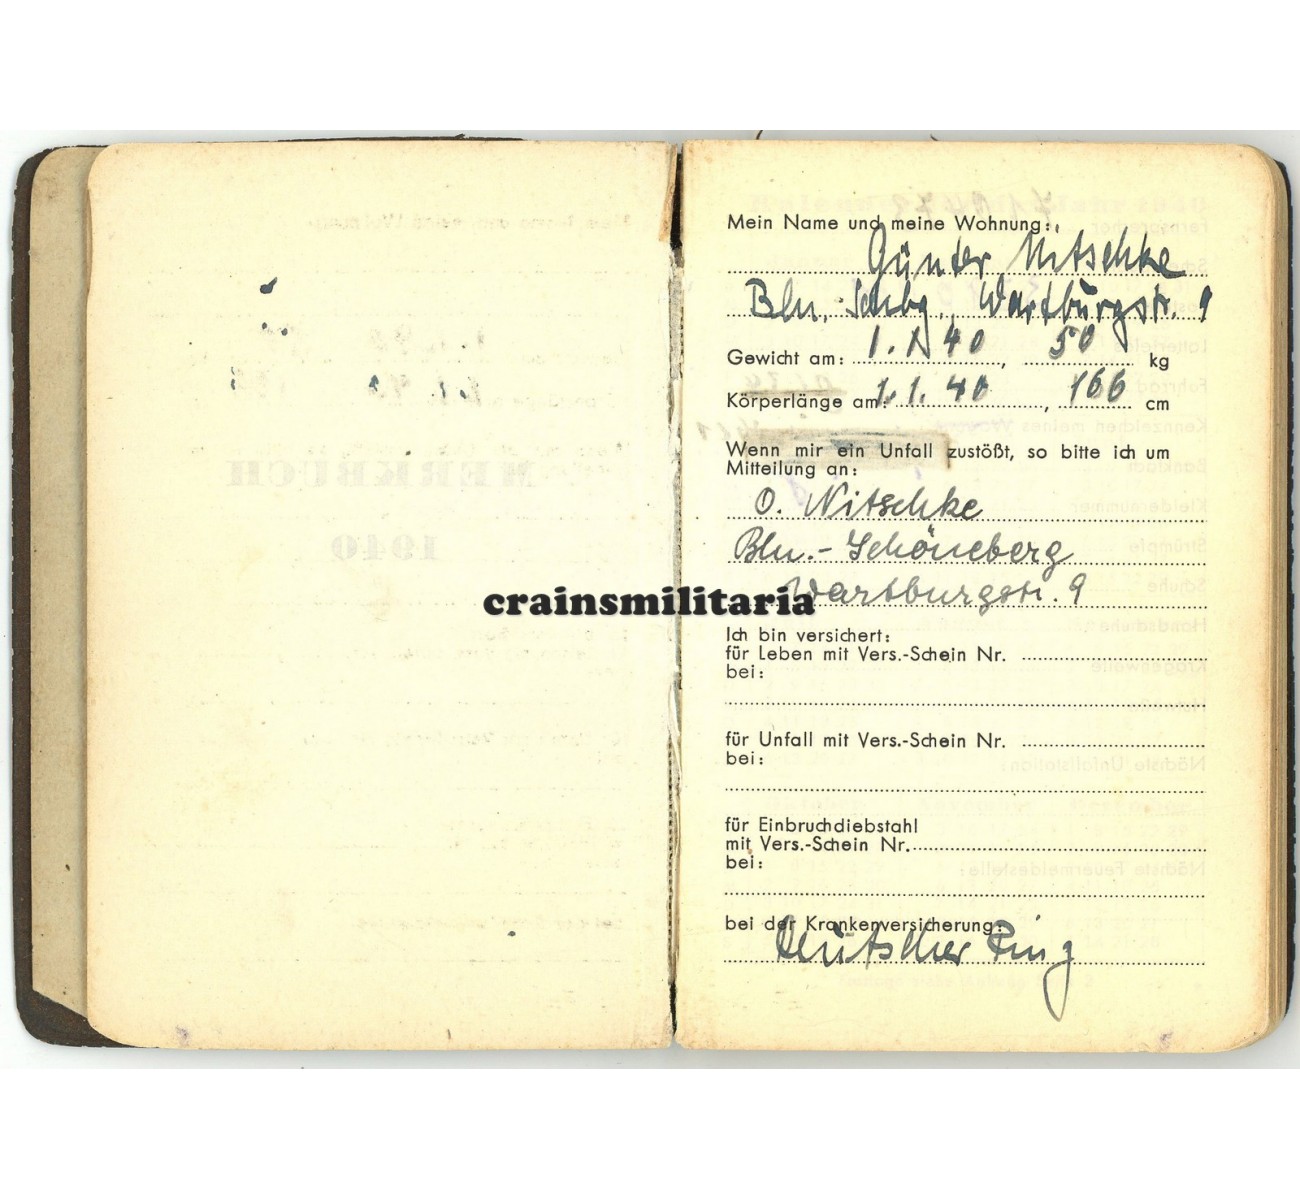 MERKBUCH
1940
Mein Name und meine Wohnung:
Günter Nitschke
Bln. Schbg., Wartburgstr. 9
Gewicht am: 1.1.40, 50 kg
Körperlänge am: 1.1.40, 166 cm
Wenn mir ein Unfall zustößt, so bitte ich um
Mitteilung an:
O. Nitschke
Bln.-Schöneberg
Wartburgstr. 9
crainsmilitaria
Ich bin versichert:
für Leben mit Vers.-Schein Nr.
bei:
für Unfall mit Vers.-Schein Nr.
bei:
für Einbruchdiebstahl
mit Vers.-Schein Nr.
bei:
bei der Krankenversicherung:
Deutscher Ring